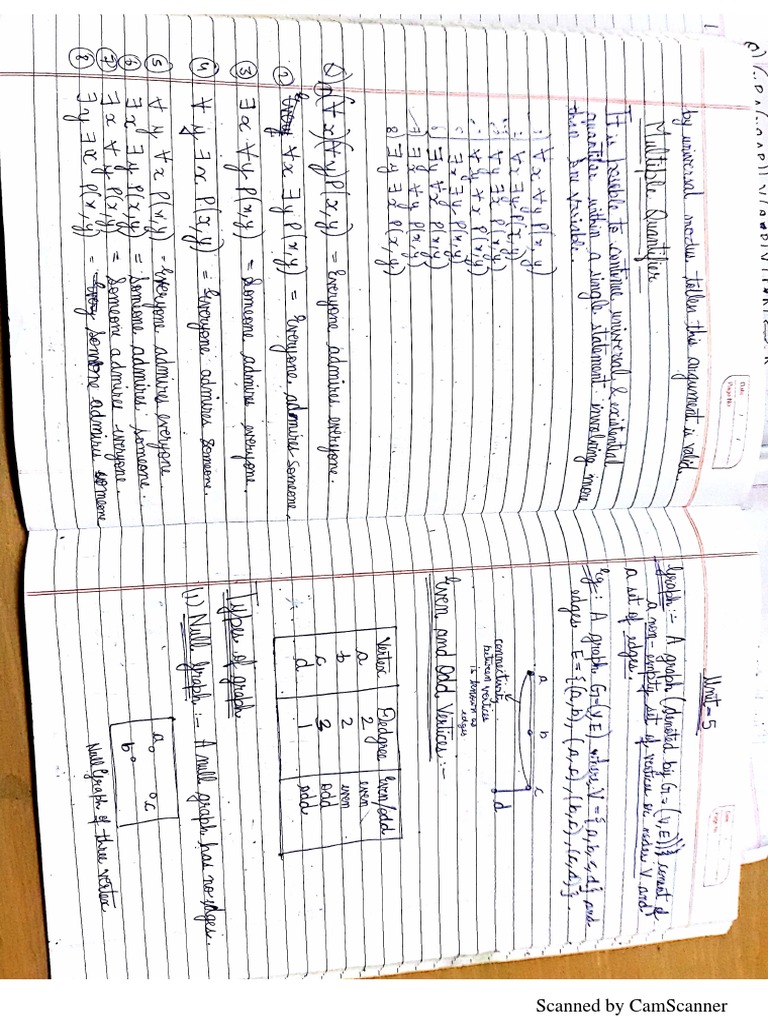 by universal modus tollen this argument is valid.
Multible Quantifier
It is possible to continue universal & existential
quantifier within a single statement involving more
than one variable.
1) ∀x ∀y P(x,y)
∀x ∃y P(x,y)
∀y ∃x P(x,y)
∀y ∀x P(x,y)
∃x ∃y P(x,y)
6) ∃y ∀x P(x,y)
7) ∃x ∀y P(x,y)
8) ∃y ∃x P(x,y)
(∀x)(∀y)P(x,y) = Everyone admires everyone.
② ∀x ∃y P(x,y) = Everyone admires someone.
③ ∃x ∀y P(x,y) = Someone admires everyone.
④ ∀y ∃x P(x,y) = Everyone admires someone.
⑤ ∀y ∀x P(x,y) = Everyone admires everyone
⑥ ∃x ∃y P(x,y) = Someone admires someone.
⑦ ∃x ∀y P(x,y) = Someone admires everyone.
⑧ ∃y ∃x P(x,y) = Someone admires someone
Unit-5
Graph :- A graph (denoted by G = (V,E)) consist of
a non-empty set of vertices or nodes V and
a set of edges.
eg :- A graph G=(V,E) where V = {a,b,c,d} and
edges E = {(a,b), (a,c), (b,c), (c,d)}.
a b c
d
connectivity
between vertices
is known as
edges
Even and Odd Vertices :-
Vertex Dedgree Even/odd
a 2 even
b 2 even
c 3 odd
d 1 odd
Types of graph
(1) Null graph :- A null graph has no edges.
a
b
c
Null Graph of three vertex
Scanned by CamScanner